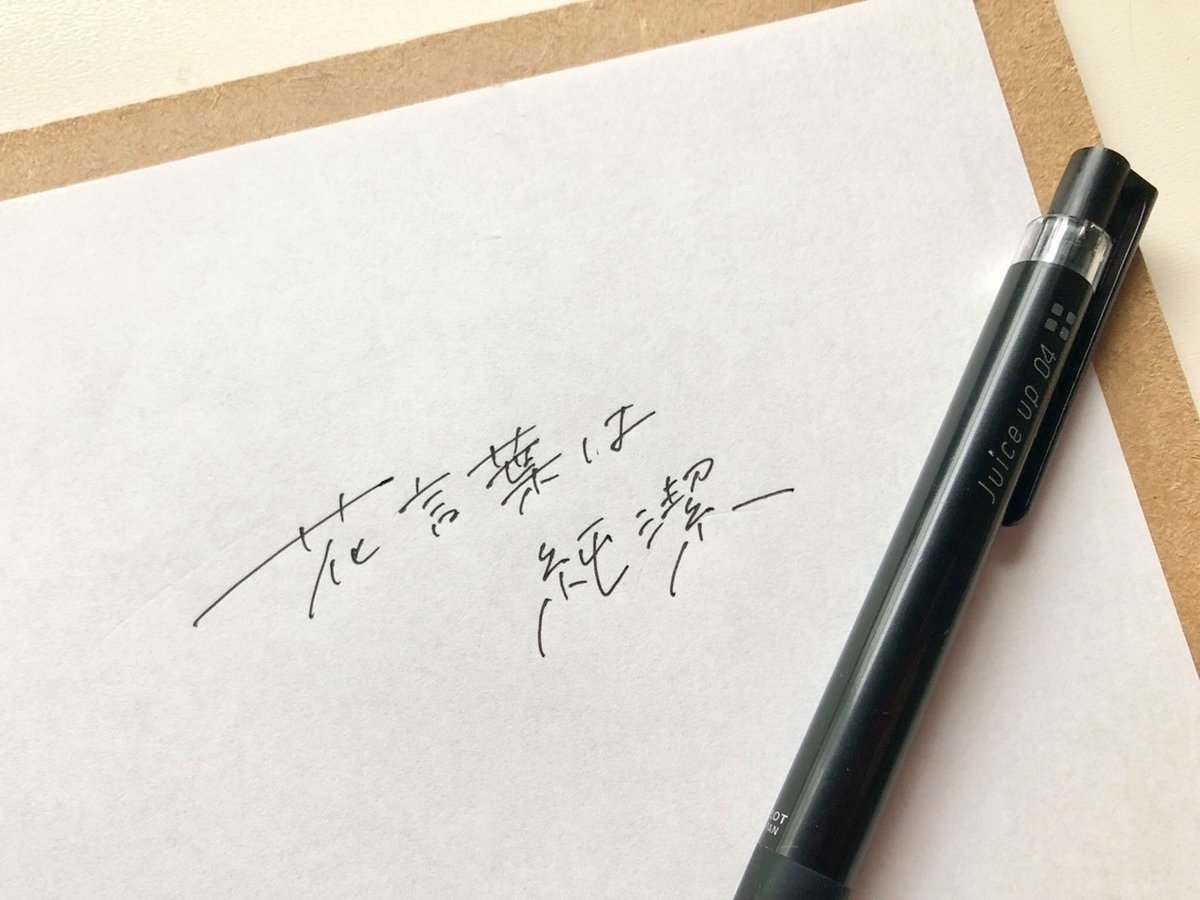 花言葉は
純潔
Juice up 04